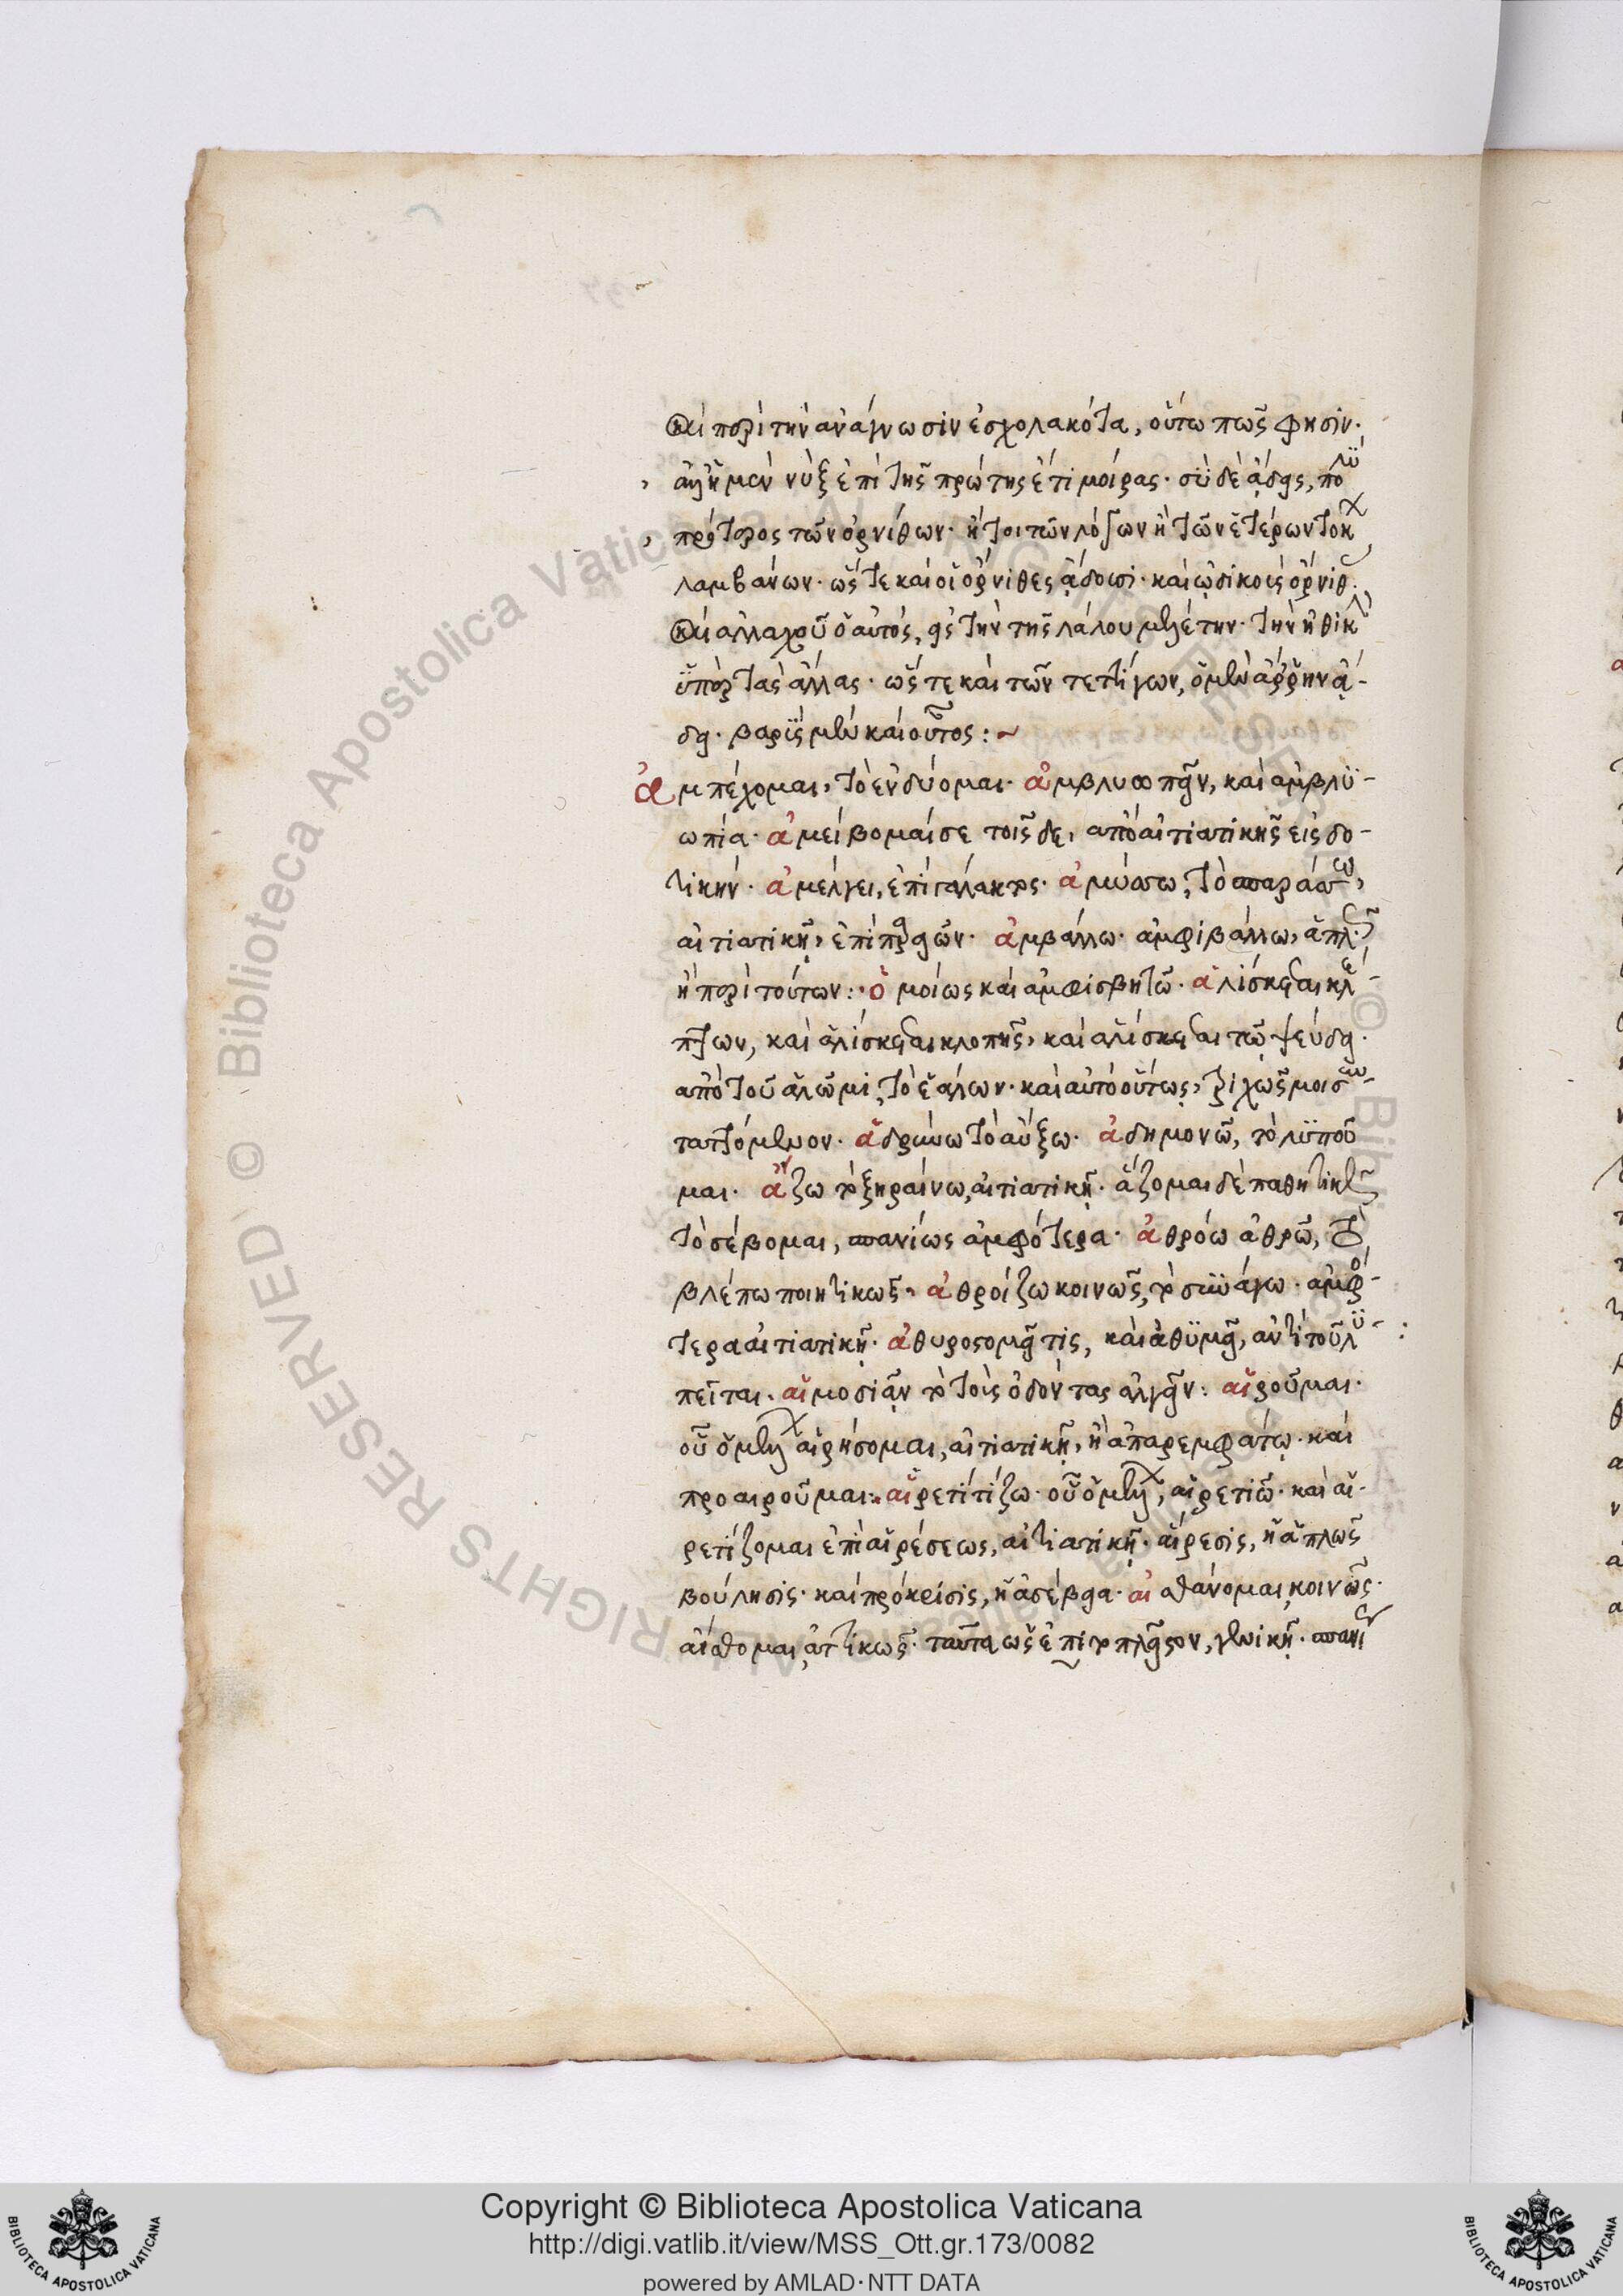 καὶ περὶ τὴν ἀνάγνωσιν ἐσχολακότα, οὕτω πῶς φησίν.
μὲν νὺξ ἐπὶ τῆς πρώτης ἔτι μοίρας. σὺ δὲ ᾄδεις,
πρότερος τῶν ὀρνίθων. ἤτοι τῶν λόγων ἢ τῶν ἑτέρων
λαμβάνων. ὥστε καὶ οἱ ὄρνιθες ᾄδουσι. καὶ ᾠδικοὶ ὄρνιθ.
καὶ ἀλλαχοῦ ὁ αὐτός, εἰς τὴν τῆς λάλου μελέτην. τὴν ἠθικ
ὑπὲρ τὰς ἄλλας. ὥς τε καὶ τῶν τεττίγων, ὁ μὲν ἄρρην ᾄ-
δει. βαρὺς μὲν καὶ οὗτος:~
ἀμπέχομαι, τὸ ἐνδύομαι. ἀμβλυωπεῖν, καὶ ἀμβλυ-
ωπία. ἀμείβομαί σε τοῖσδε, ἀπὸ αἰτιατικῆς εἰς δο-
τικήν. ἀμέλγει, ἐπὶ γάλακτος. ἀμύσσω, τὸ σπαράσσω,
αἰτιατικῇ, ἐπὶ ἀμβάλλω. ἀμφιβάλλω, ἁπλ.
ἢ περὶ τούτων: ὁμοίως καὶ ἀμφισβητῶ. ἁλίσκεται κλέ-
πτων, καὶ ἁλίσκεται κλοπῆς, καὶ ἁλίσκεται τῷ ψεύδει.
ἀπὸ τοῦ ἁλῶμι, τὸ ἑάλων. καὶ αὐτὸ οὕτως,
ταττόμενον. ἁδρύνω τὸ αὔξω. ἀδημονῶ, τὸ λυποῦ
μαι. ἄζω τὸ ξηραίνω, αἰτιατικῇ. ἅζομαι δὲ παθητικῶς
τὸ σέβομαι, σπανίως ἀμφότερα. ἀθρόω ἀθρῶ, τὸ
βλέπω ποιητικῶς, ἀθροίζω κοινῶς, τὸ συνάγω. ἀμφό-
τερα αἰτιατικῇ. ἀθυροστομεῖ τις, καὶ ἀθυμεῖ, ἀντὶ τοῦ λυ-
πεῖται. αἱμωδιᾶν τὸ τοὺς ὀδόντας ἀλγεῖν: αἱροῦμαι.
οὗ ὁ μέλλων αἱρήσομαι, αἰτιατικῇ, ἢ ἀπαρεμφάτῳ. καὶ
προαιροῦμαι. αἱρετιτίζω. οὗ ὁ μέλλων, αἱρετιῶ. καὶ αἱ-
ρετίζομαι ἐπὶ αἱρέσεως, αἰτιατικῇ. αἵρεσις, ἡ ἁπλῶς
βούλησις. καὶ πρόκρισις, ἡ ἀσέβεια. αἰσθάνομαι κοινῶς.
αἴσθομαι ἀττικῶς. ταῦτα ὡς ἐπὶ τὸ πλεῖστον, γενικῇ.
Copyright © Biblioteca Apostolica Vaticana
http://digi.vatlib.it/view/MSS_Ott.gr.173/0082
powered by AMLAD · NTT DATA